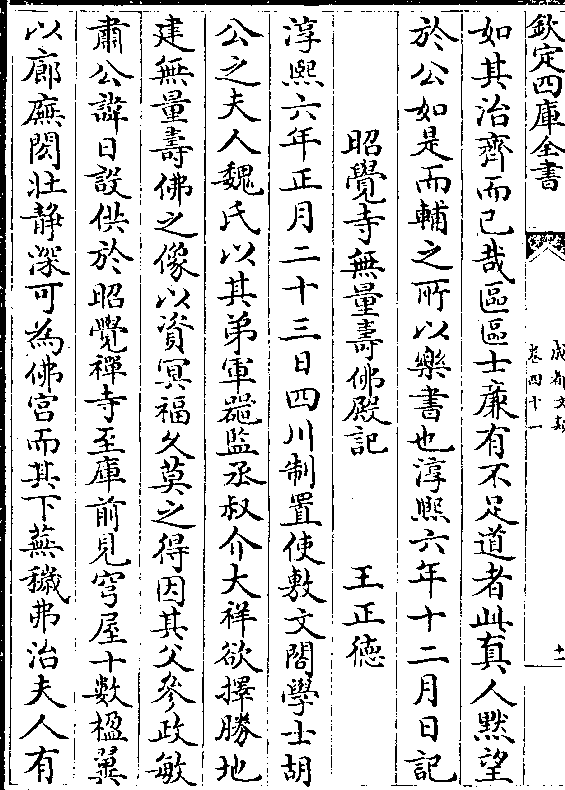 欽定四庫全書
成都文類
卷四十一
十一
如其治齊而已哉區區士亷有不足道者此真人黙望
於公如是而輔之所以樂書也淳熙六年十二月日記
昭覺寺無量壽佛殿記 王正德
淳熙六年正月二十三日四川制置使敷文閣學士胡
公之夫人魏氏以其弟軍器監丞叔介大祥欲擇勝地
建無量壽佛之像以資冥福久莫之得因其父參政敏
肅公諱日設供於昭覺禪寺至庫前見穹屋十數楹翼
以廊廡閎壯静深可為佛宫而其下蕪穢弗治夫人有